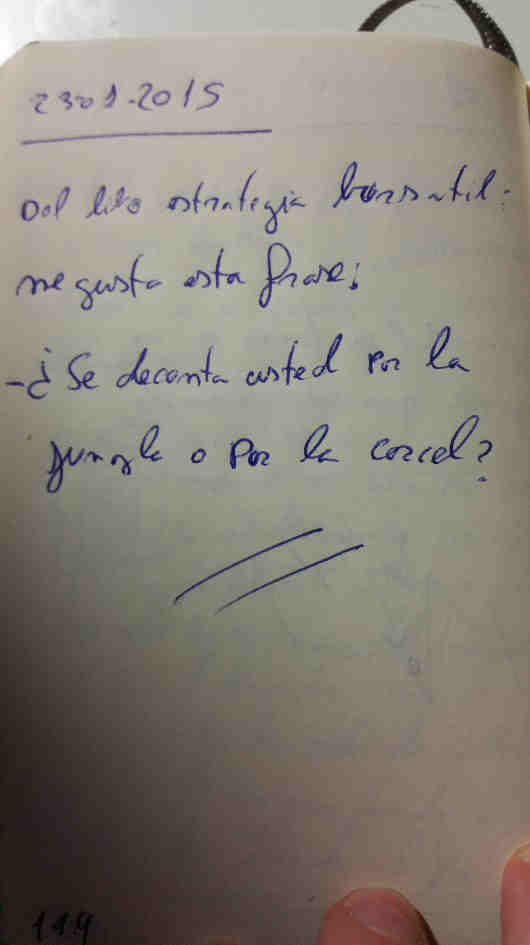 23-01-2015
Del libro estrategia bursatil:
me gusta esta frase:
- ¿Se decanta usted por la
jungla o por la carcel?
119